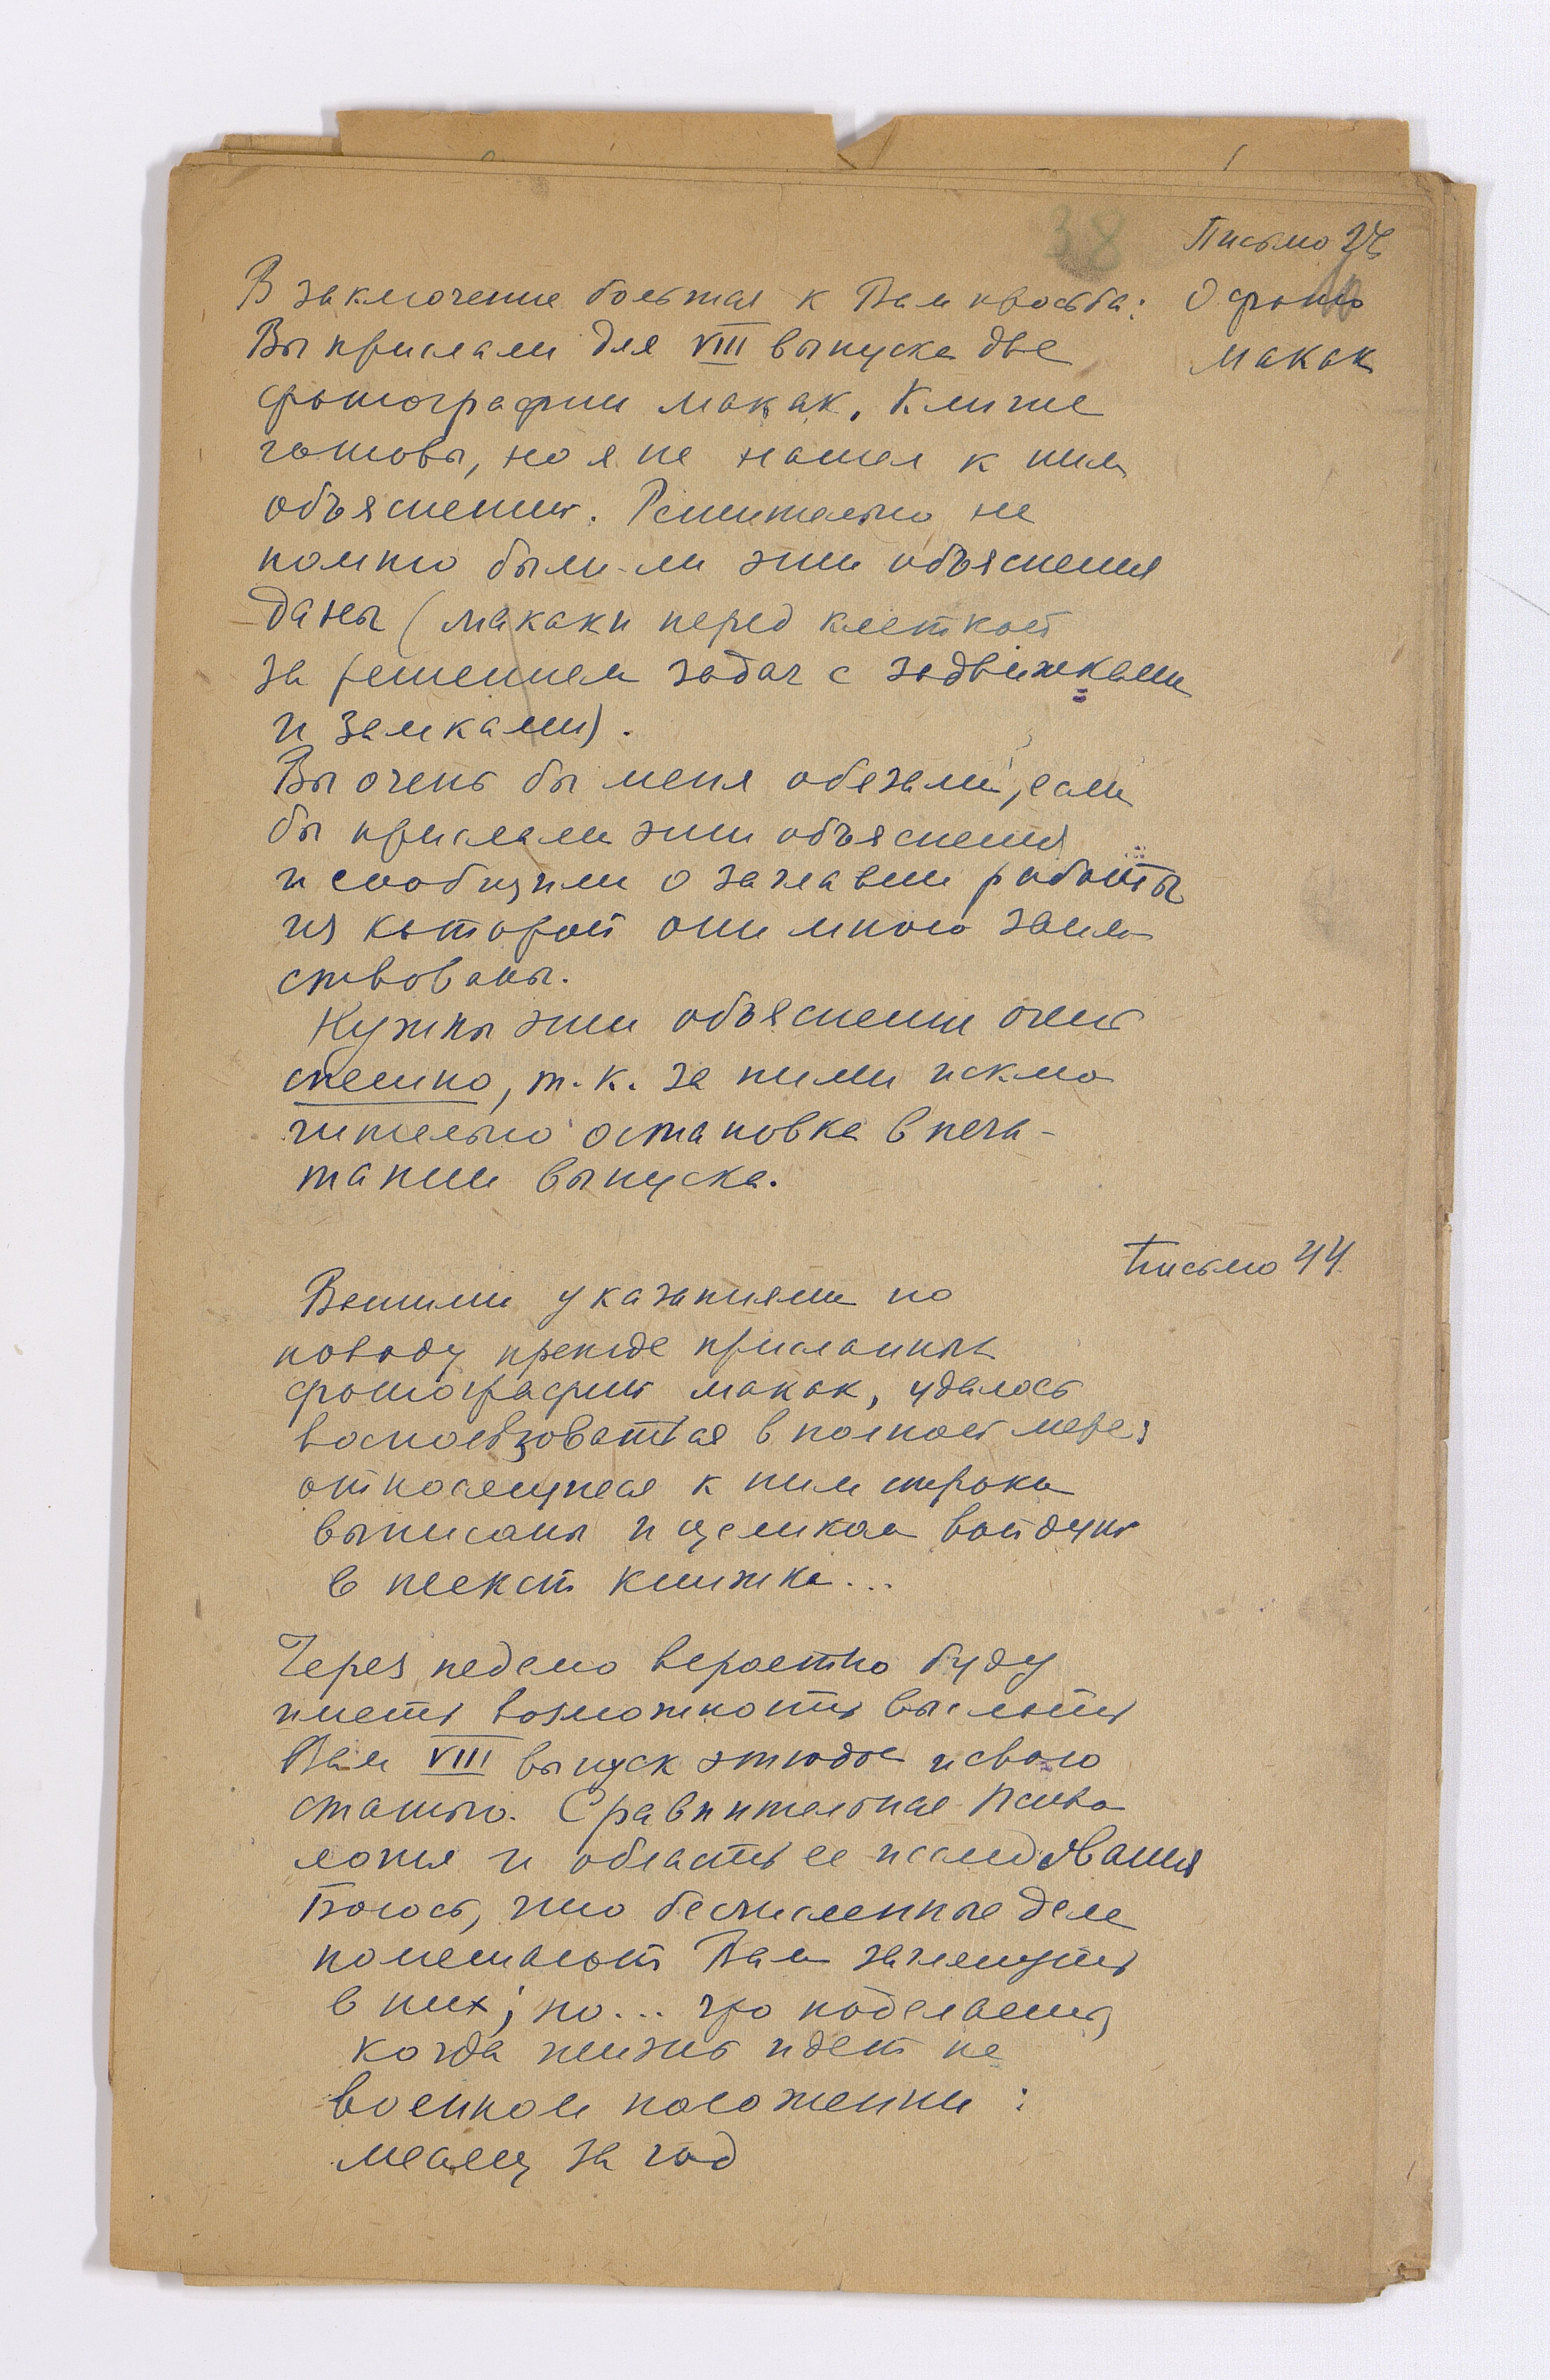 38
Письмо
В заключение большая к Вам просьба:
О фото
Вы прислали для VIII выпуска две
макак
фотографии макак. Клише
готовы, но я не нашел к ним
объяснений. Решительно не
помню были-ли эти объяснения
даны (макаки перед клеткой
за решением задач с задвижками
и замками).
Вы очень бы меня обязали, если
бы прислали эти объяснения
и сообщили о заглавии работы
из которой они мною заим
ствованы.
Нужны эти объяснения очень
спешно, т.к. за ними исклю
чительно остановка в печа-
тании выпуска.
Письмо 44
Вашими указаниями по
поводу прежде присланных
фотографий макак, удалось
воспользоваться в полной мере;
относящиеся к ним строки
выписаны и целиком войдут
в текст книжки...
Через неделю вероятно буду
иметь возможность выслать
Вам VIII выпуск этюдов и свою
статью. Сравнительная Психо
логия и область ее исследования
Боюсь, что бесчисленные дела
помешают Вам заглянуть
в них; но... что поделаешь,
когда жизнь идет на
военном положении:
месяц за год